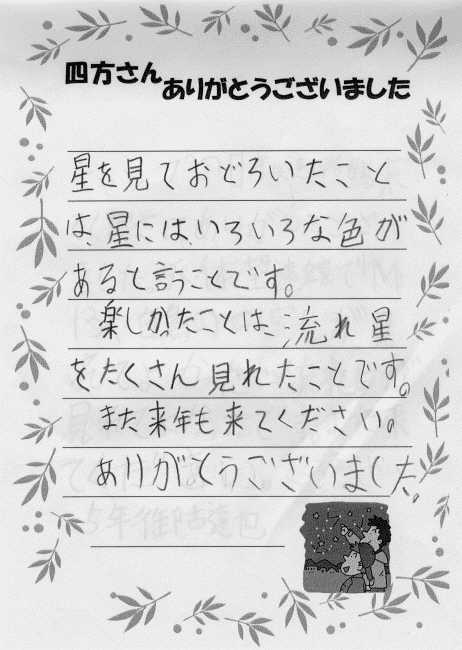 四方さん
ありがとうございました
星を見ておどろいたこと
は、星には、いろいろな色が
あると言うことです。
楽しかったことは、流れ星
をたくさん見れたことです。
また来年も来てください。
ありがとうございました。